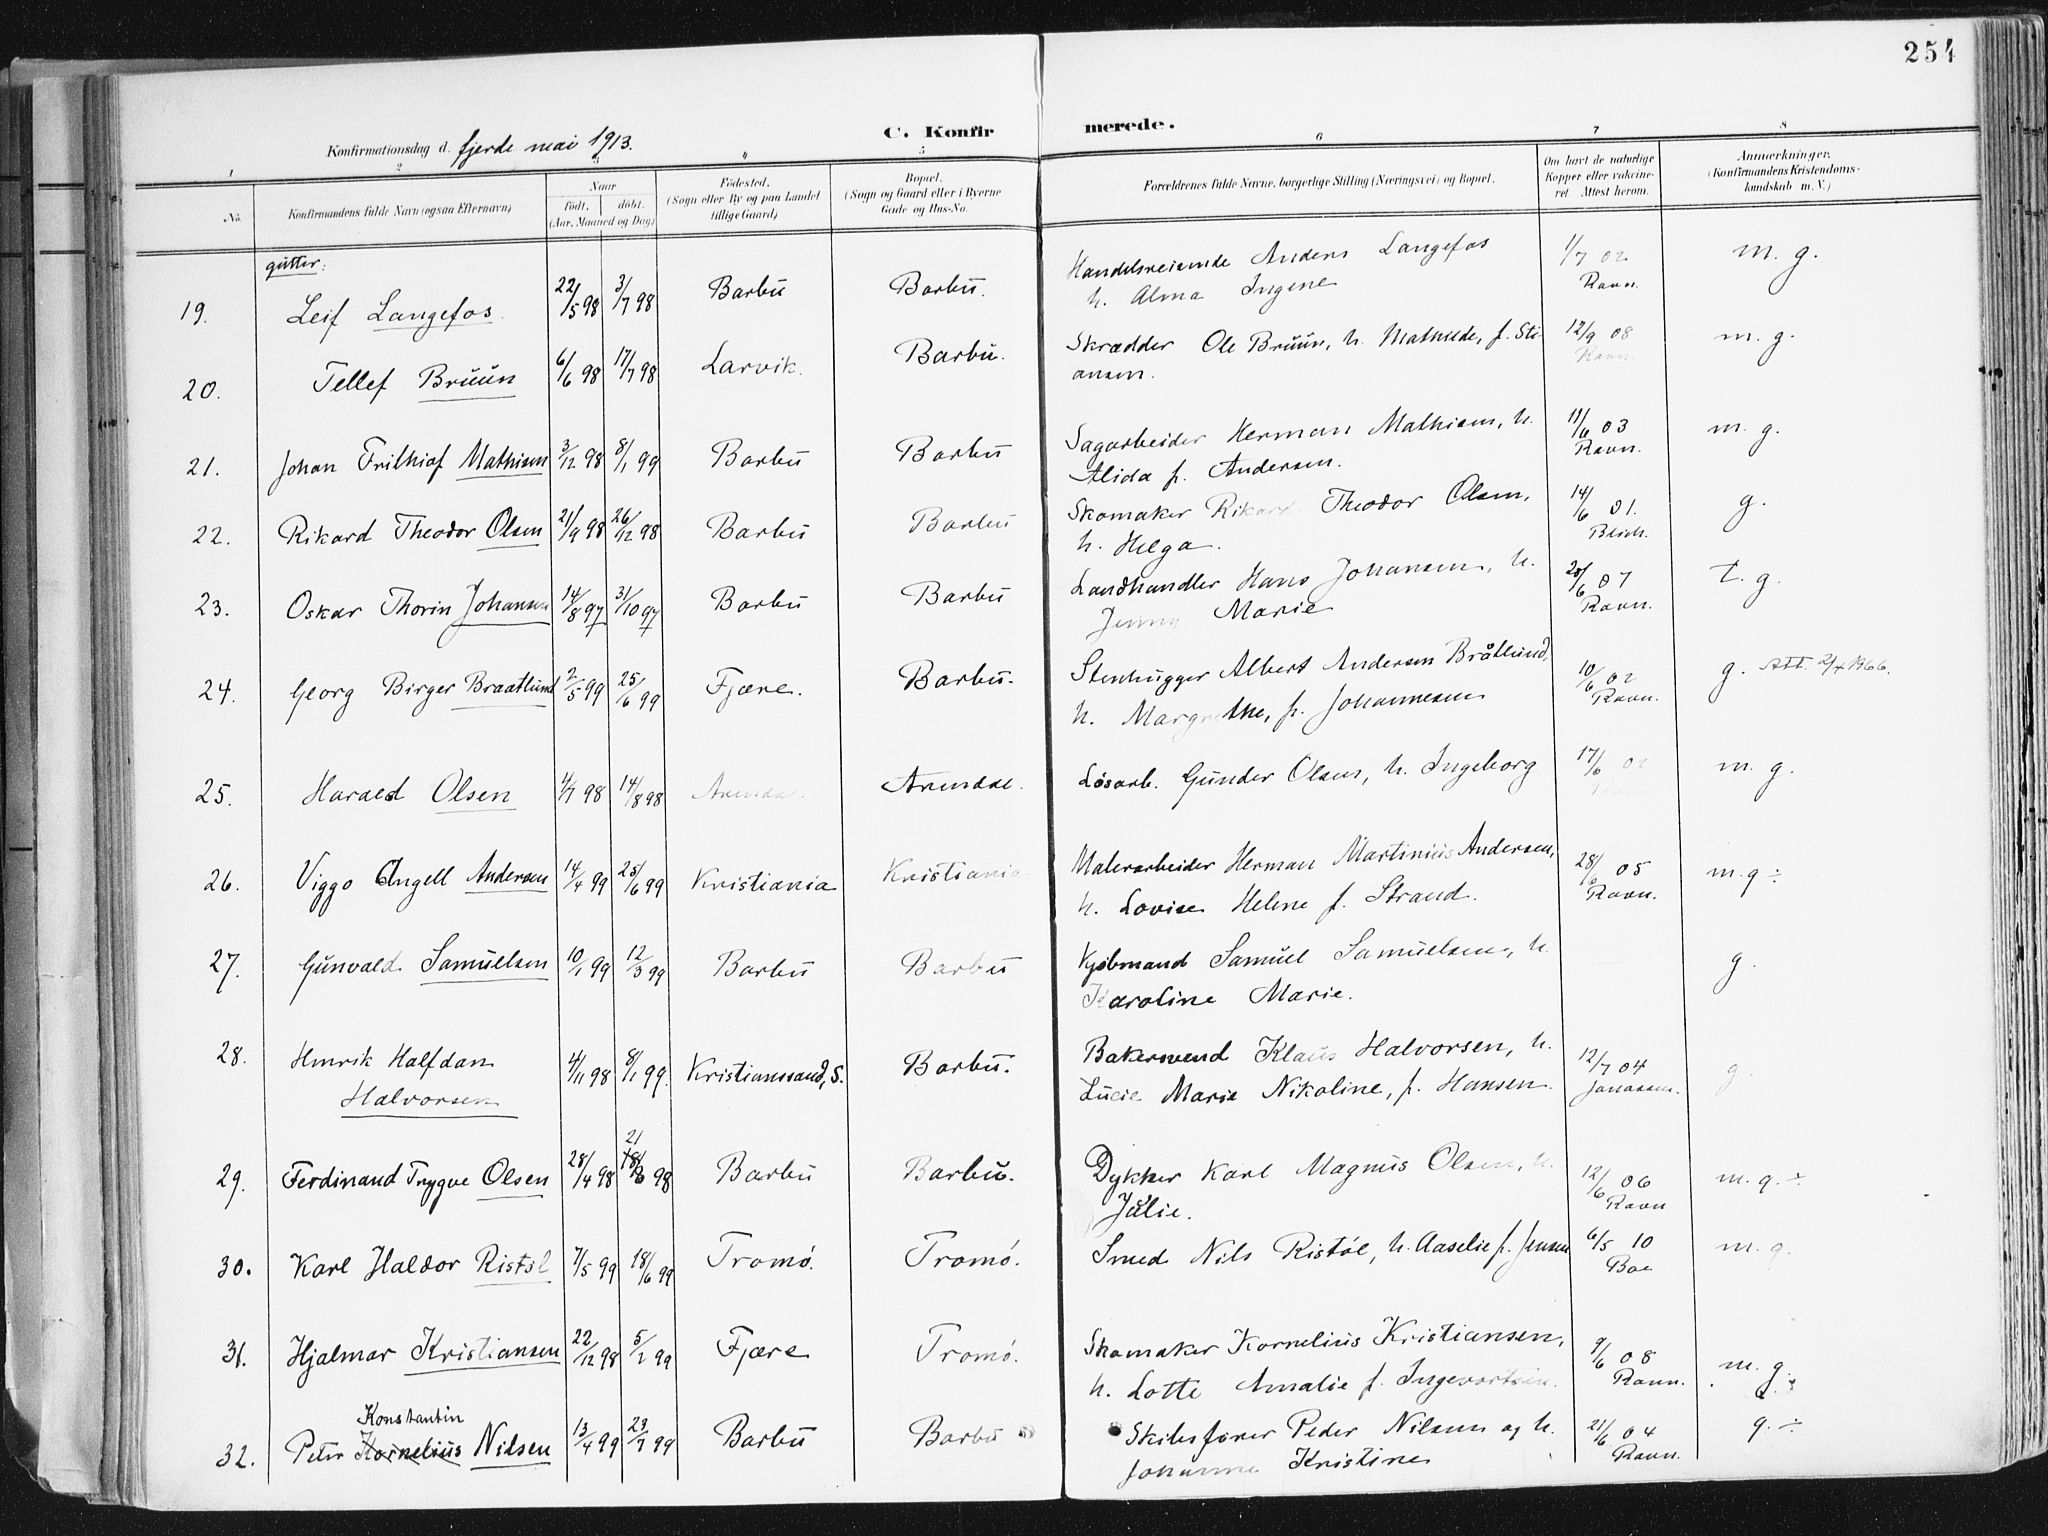 254
C. Konfirmerede.
Konfirmationsdag d. fjerde mai 1913.
1 2 3 4 5 6 7 8
No. Konfirmandens fulde Navn (ogsaa Efternavn) Naar født. døbt. (Aar, Maaned og Dag) Fødested. (Sogn eller By og paa Landet tillige Gaard) Bopæl. (Sogn og Gaard eller i Byerne Gade og Hus-No. Forældrenes fulde Navne, borgerlige Stilling (Næringsvei) og Bopæl. Om havt de naturlige Kopper eller vakcineret. Attest herom. Anmærkninger. (Konfirmandens Kristendomskundskab m. V.)
gutter:
19. Leif Langefos 22/5 98 3/7 98 Barbu Barbu. Handelsreisende Anders Langefos 1/7 02 m. g.
h. Alma Ingine Ravn.
20. Tellef Bruun 6/6 98 17/7 98 Larvik. Barbu. Skrædder Ole Bruun, h. Mathilde, f. Sti- 12/9 08 m. g.
ansen. Ravn.
21. Johan Frithiof Mathisen 3/12 98 8/1 99 Barbu Barbu Sagarbeider Herman Mathisen, h. 11/6 03 m. g.
Alida f. Andersen. Ravn.
22. Rikard Theodor Olsen 21/9 98 26/12 98 Barbu Barbu Skomaker Rikard Theodor Olsen, 14/6 01. g.
h. Helga.
23. Oskar Thorin Johansen 14/8 97 31/10 97 Barbu Barbu Landhandler Hans Johansen, h. 07 t. g.
Jenny Marie Ravn.
24. Georg Birger Braatlund 2/5 99 25/6 99 Fjære. Barbu. Stenhugger Albert Andersen Bråtlund, 10/6 02 g. Att. 2/4 1966.
h. Margrethe, f. Johannesen Ravn.
25. Harald Olsen 1/7 98 14/8 98 Arendal. Arendal. Løsarb. Gunder Olsen, h. Ingeborg 17/6 02 m. g.
Ravn
26. Viggo Angell Andersen 14/4 99 25/6 99 Kristiania Kristiania Malerarbeider Herman Martinius Andersen, 28/6 05 m. g ÷
h. Lovise Helene f. Strand. Ravn.
27. Gunvald Samuelsen 10/1 99 12/3 99 Barbu Barbu Kjøbmand Samuel Samuelsen, h. g.
Karoline Marie.
28. Henrik Halfdan 4/11 98 8/1 99. Kristianssand, S. Barbu. Bakersvend Klaus Halvorsen, h. 12/7 04 g.
Halvorsen Lucie Marie Nikoline, f. Hansen. Jonassen.
29. Ferdinand Trygve Olsen 28/4 98 21 18/6 98 Barbu Barbu. Dykker Karl Magnus Olsen, h. 12/6 06 m. g. ÷
Julie. Ravn
30. Karl Haldor Ristøl 7/5 99 18/6 99 Tromø. Tromø. Smed Nils Ristøl, h. Aaselie f. Jensen 6/5 10 m. g.
Boe
31. Hjalmar Kristiansen 22/12 98 5/2 99 Fjære Tromø. Skomaker Kornelius Kristiansen, 9/6 08 m. g.
h. Lotte Amalie f. Ingevortsen. Ravn.
32. Peter Kornelius Konstantin Nilsen 13/4 99 23/7 99 Barbu Barbu Skibsfører Peder Nilsen og h. 21/6 04 g. ÷
Johanne Kristine Ravn.